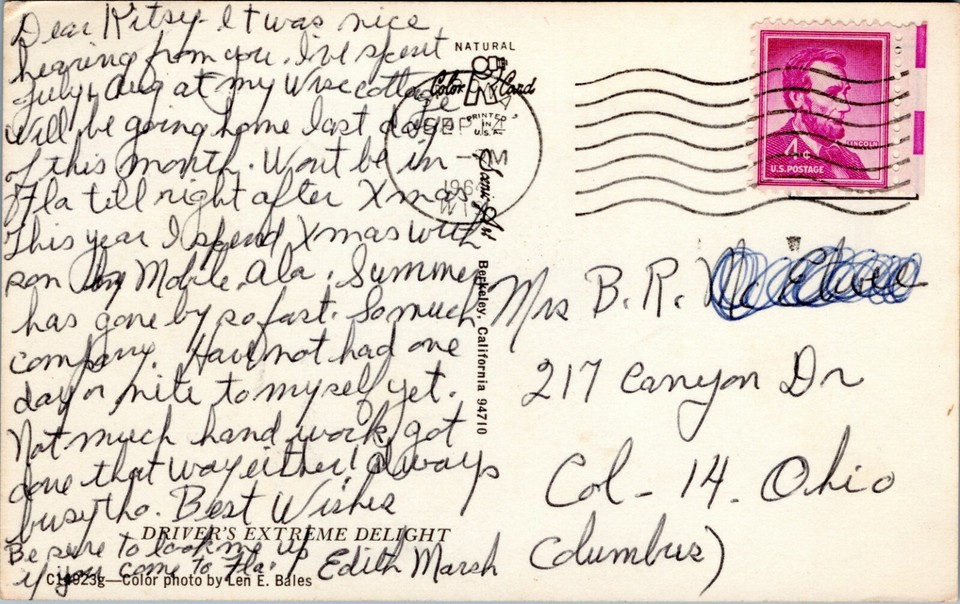 Dear Kitsy - It was nice
hearing from you. I've spent
July & Aug at my Wisc cottage
will be going home last day
of this month. Wont be in
Fla till right after Xmas
This year I spend Xmas with
son in Mobile, Ala. Summer
has gone by so fast. So much
company. Have not had one
day or nite to myself yet.
Not much hand work got
done that way either! Always
busy tho. Best Wishes
Be sure to look me up
if you come to Fla. Edith Marsh
DRIVER'S EXTREME DELIGHT
C14923g—Color photo by Len E. Bales
NATURAL
Color Card
PRINTED
IN
U.S.A.
Berkeley, California 94710
SEP
PM
196
WIS
LINCOLN
4¢
U.S. POSTAGE
Mrs B. R.
217 Canyon Dr
Col - 14 - Ohio
Columbus)